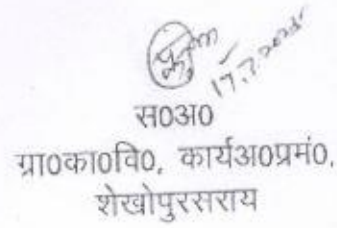 17.7.2025
स0अ0
ग्रा0का0वि0, कार्यअ0प्रमं0,
शेखोपुरसराय